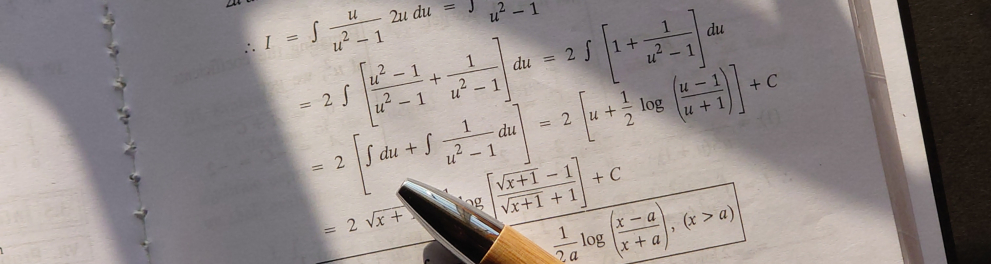 ∴ I = ∫ u/(u² − 1) 2u du = ∫ /(u² − 1)
= 2 ∫ [(u² − 1)/(u² − 1) + 1/(u² − 1)] du = 2 ∫ [1 + 1/(u² − 1)] du
= 2 [∫ du + ∫ 1/(u² − 1) du] = 2 [u + 1/2 log ((u − 1)/(u + 1))] + C
= 2 √x + log [(√x+1 − 1)/(√x+1 + 1)] + C
1/2a log ((x − a)/(x + a)), (x > a)